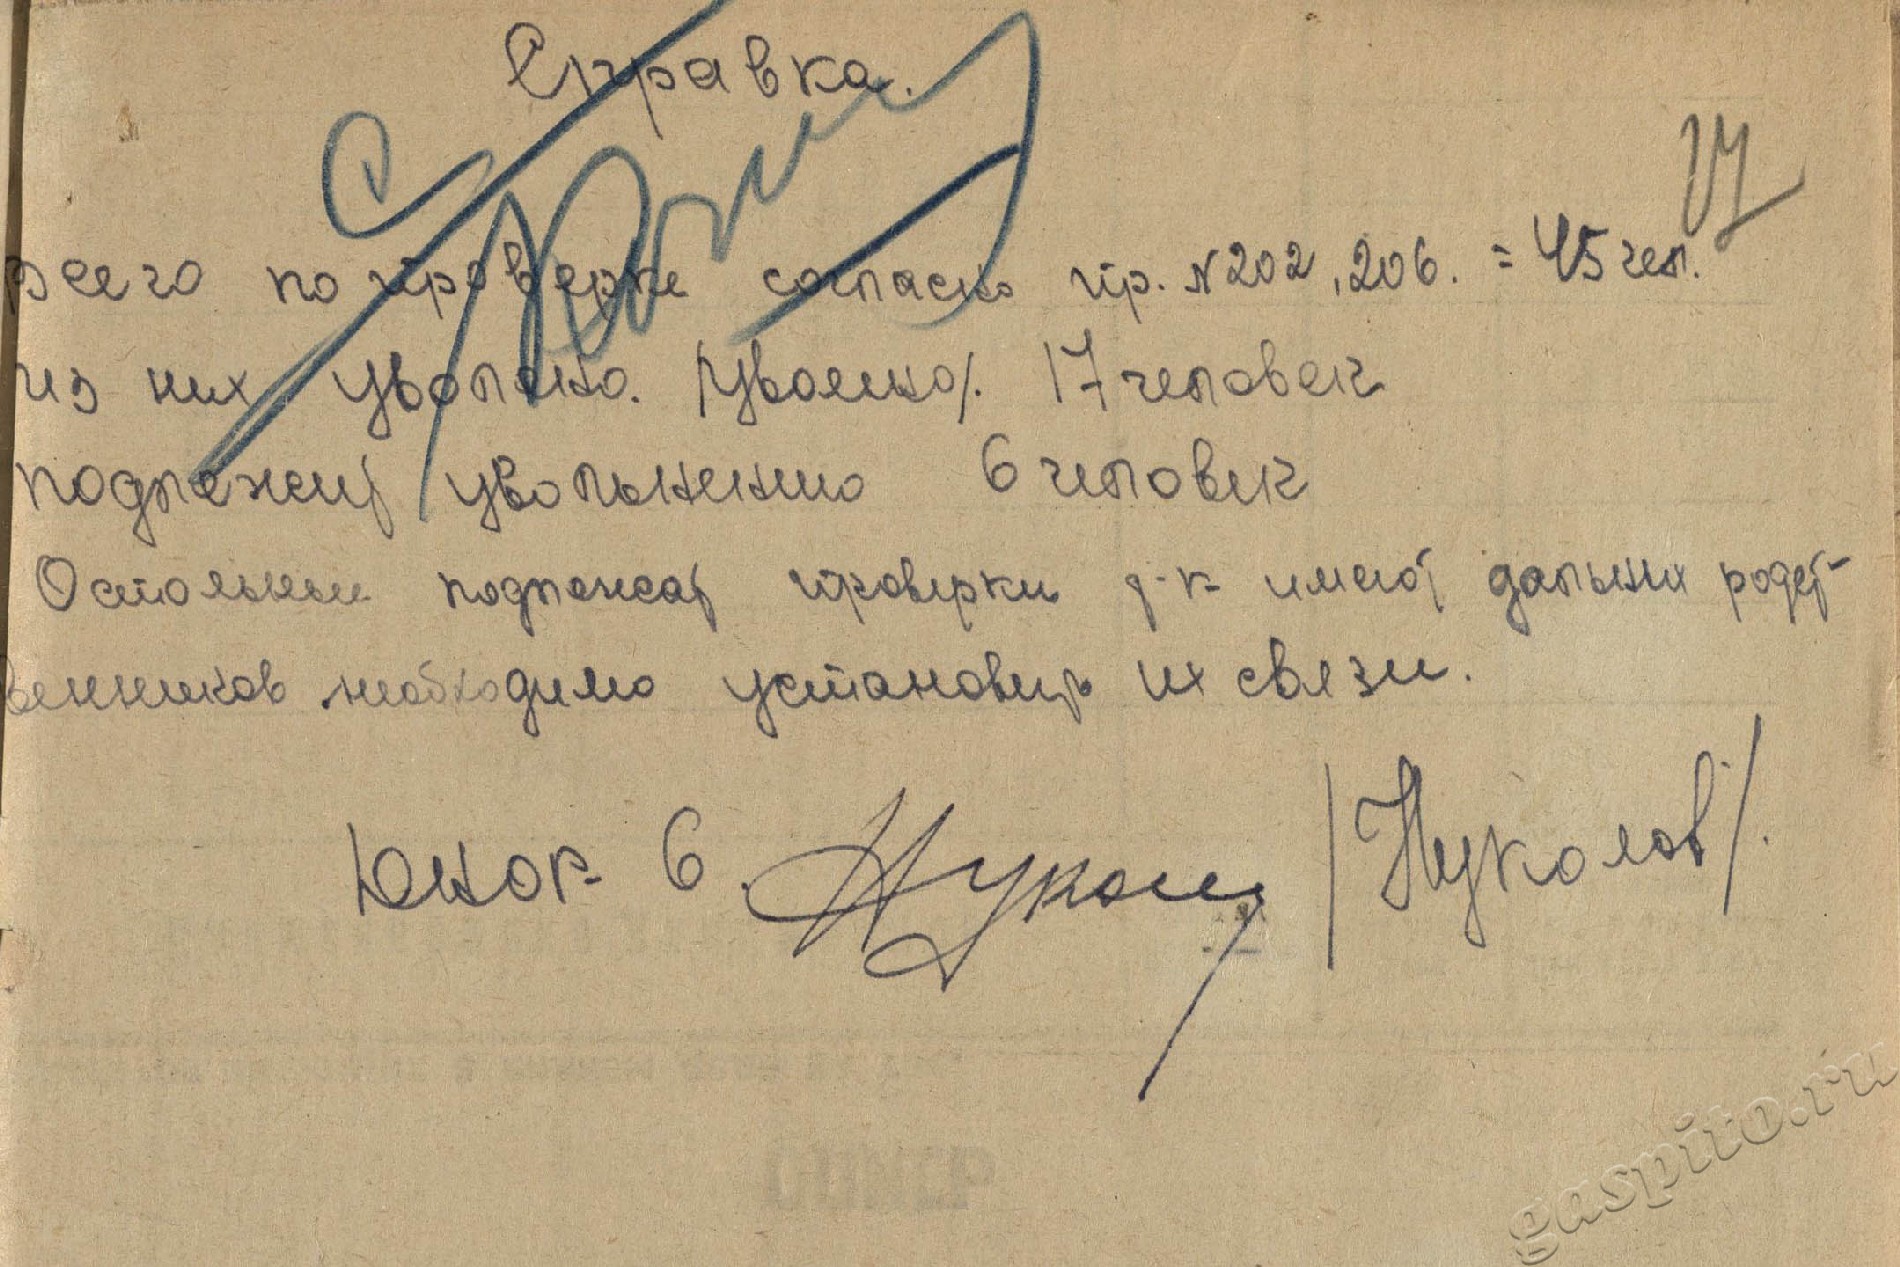 Справка.
17
Всего по проверке согласно пр. №202, 206. = 45 чел.
из них уволено. /уволено/. 17 человек
подлежит увольнению 6 человек
Остальные подлежат проверки т-к имеют дальних родст-
венников необходимо установить их связи.
6. /Нуколов/.
gaspito.ru